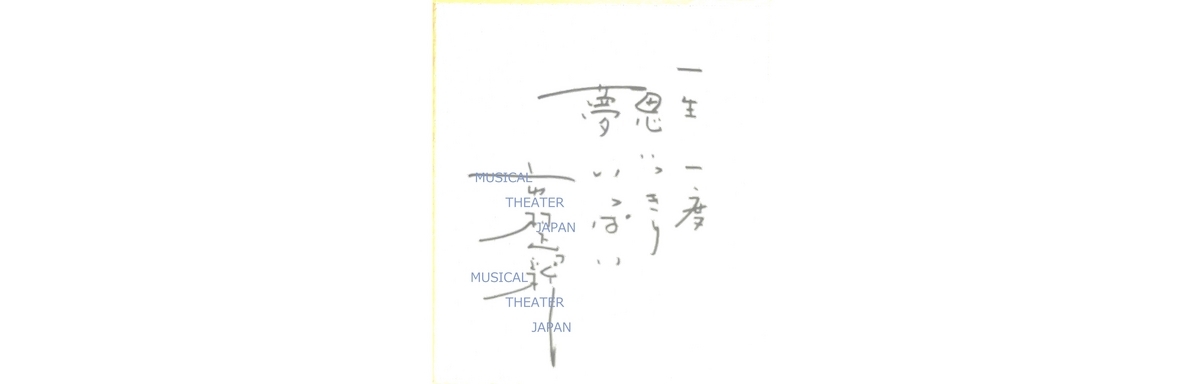 一生一度
思いっきり
夢いっぱい
MUSICAL
THEATER
JAPAN
MUSICAL
THEATER
JAPAN